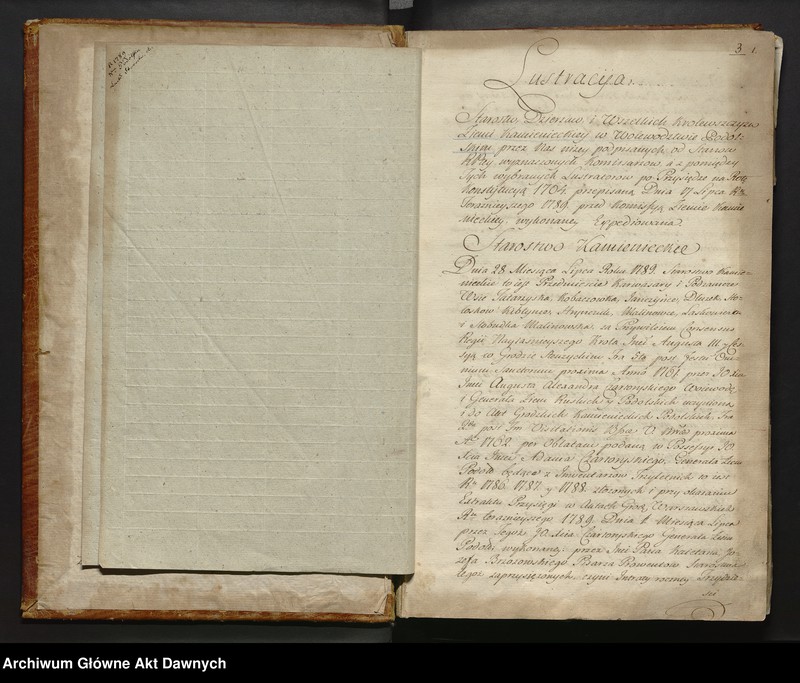 3 1
Lustracyia
Starostw, Dzierżaw, i Wszelkich Krolewszczyzn
Ziemi Kamienieckiey w Wolewodztwie Podol
skim przez Nas niżey podpisanych od Stanow
Rltey wyznaczonych Kommisarzow, a z pomiędzy
tych wybranych Lustratorow po Przysiędze na Rotę
Konstytucyą 1764 przepisaną Dnia 17 Lipca Rku
teraznieyszego 1789 przed Kommissyą Ziemie Kamie
nieckiey wykonaney Expediowana
Starostwo Kamienieckie
Dnia 28 Miesiąca Lipca Roku 1789. Starostwo Kamie-
nieckie to iest Przedmieście Karwasary i Podzamcze
Wsie Tatarzyska, Kobaczowka, Janczynce, Dłuzek,
Kublynie, Hrynczuk, Malinowce, Laskorunka
i Słobudka Malinowska, za Przywileiem Consensus
Regii Nayiasnieyszego Krola Jmci Augusta III
w Grodzie post Festum Om
nium Sanctorum proxima Anno 1761 przez JO Xcia
Jmci Augusta Alexandra Czartoryskiego Woiewodę
i Generała Ziem Ruskich y Podolskich uczynioną
i do Akt Grodzkich Kamienieckich Podolskich Fra
2tta post Fm Visitationis B V proxima
Ao 1762 per Oblatam podaną w Possessyi JO
Xcia Jmci Adama Czartoryskiego, Generała Ziem
Podol: będące z Inwentarzow Trzyletnich to iest
Rku 1786. 1787 y 1788. złożonych i przy okazaniu
Extraktu Przysięgi w Aktach Grod: Warszawskich
Rku teraznieyszego 1789 Dnia 1 Miesiąca Lipca
przez tegoż JO Xcia Czartoryskiego Generała Ziem
Podol: wykonaney, przez Jmci Pana Kaietana Jo
zefa Brzozowskiego Pisarza Prowentow Starostwa
tegoż zaprzysiężonych, czyni Intraty roczney
Archiwum Główne Akt Dawnych